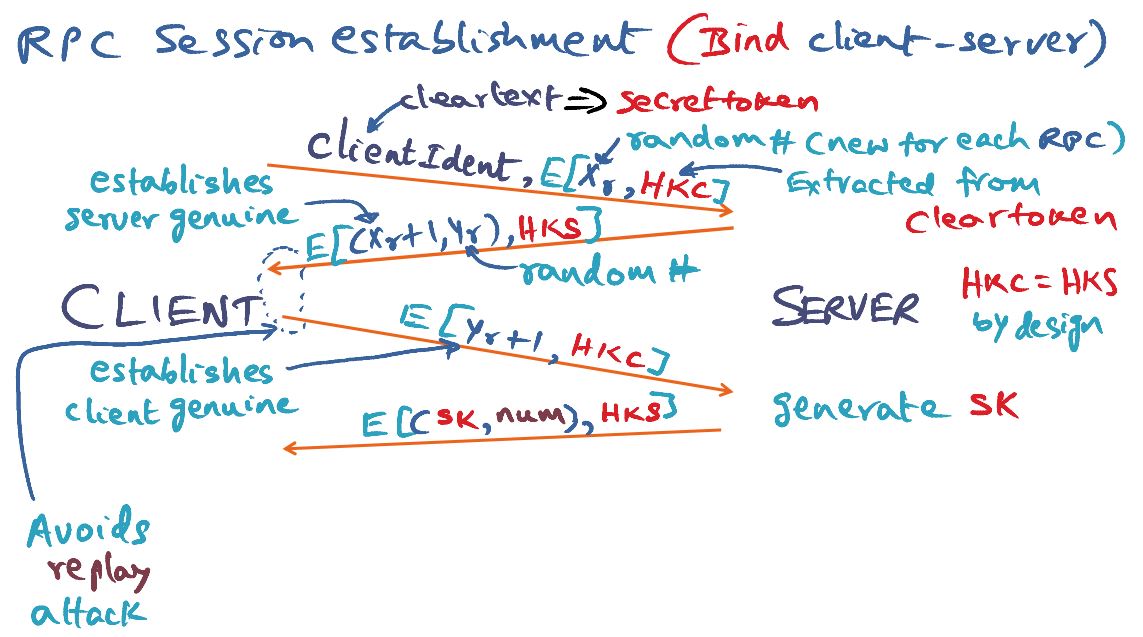 RPC Session establishment (Bind client-server)
cleartext ⇒ secrettoken
ClientIdent, E[Xr, HKC]
random # (new for each RPC)
Extracted from
cleartoken
establishes
server genuine
E[(Xr+1, Yr), HKS]
random #
CLIENT
SERVER
HKC = HKS
by design
E[Yr+1, HKC]
establishes
client genuine
generate SK
E[(SK, num), HKS]
Avoids
replay
attack